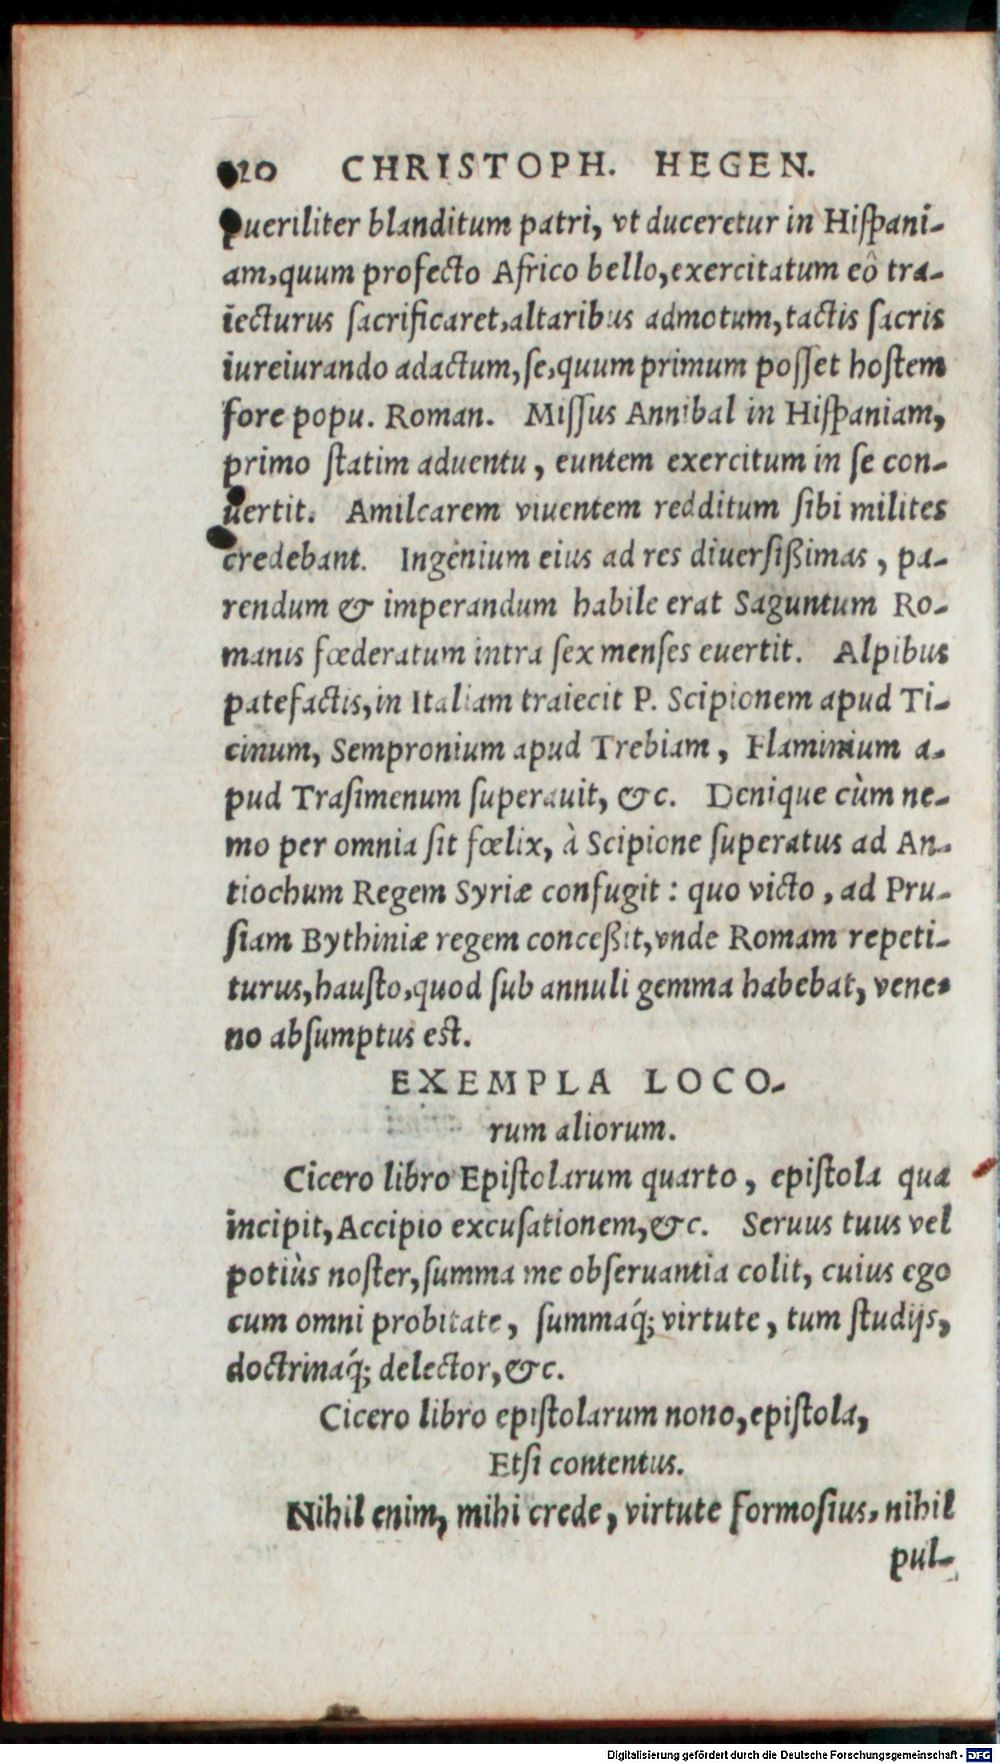 20 CHRISTOPH. HEGEN.
pueriliter blanditum patri, vt duceretur in Hiſpani-
am, quum profecto Africo bello, exercitatum eô tra-
iecturus ſacrificaret, altaribus admotum, tactis ſacris
iureiurando adactum, ſe, quum primum poſſet hoſtem
fore popu. Roman. Miſſus Annibal in Hiſpaniam,
primo ſtatim aduentu, euntem exercitum in ſe con-
uertit. Amilcarem viuentem redditum ſibi milites
credebant. Ingenium eius ad res diuerſißimas, pa-
rendum & imperandum habile erat Saguntum Ro-
manis fœderatum intra ſex menſes euertit. Alpibus
patefactis, in Italiam traiecit P. Scipionem apud Ti-
cinum, Sempronium apud Trebiam, Flaminium a-
pud Traſimenum ſuperauit, &c. Denique cùm ne-
mo per omnia ſit fœlix, à Scipione ſuperatus ad An-
tiochum Regem Syriæ confugit: quo victo, ad Pru-
ſiam Bythiniæ regem conceßit, vnde Romam repeti-
turus, hauſto, quod ſub annuli gemma habebat, vene-
no abſumptus eſt.
EXEMPLA LOCO-
rum aliorum.
Cicero libro Epiſtolarum quarto, epiſtola qua
incipit, Accipio excuſationem, &c. Seruus tuus vel
potiùs noſter, ſumma me obſeruantia colit, cuius ego
cum omni probitate, ſummaq́; virtute, tum ſtudijs,
doctrinaq́; delector, &c.
Cicero libro epiſtolarum nono, epiſtola,
Etſi contentus.
Nihil enim, mihi crede, virtute formoſius, nihil
pul-
Digitalisierung gefördert durch die Deutsche Forschungsgemeinschaft - DFG